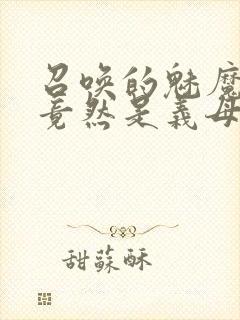 召唤的魅魔
竟然是義母
甜蘇酥